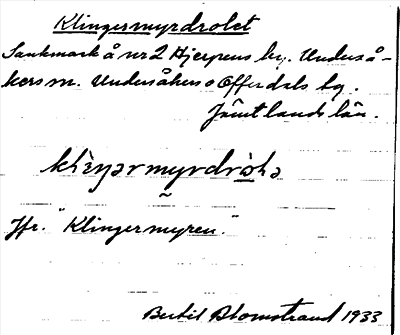 Klingermyrdrolet
Sankmark å nr 2 Hjerpens by. Underså-
kers sn. Undersåkers o Offerdals by.
Jämtlands län.
Jfr. "Klingermyren".
Bertil Blomstrand 1933